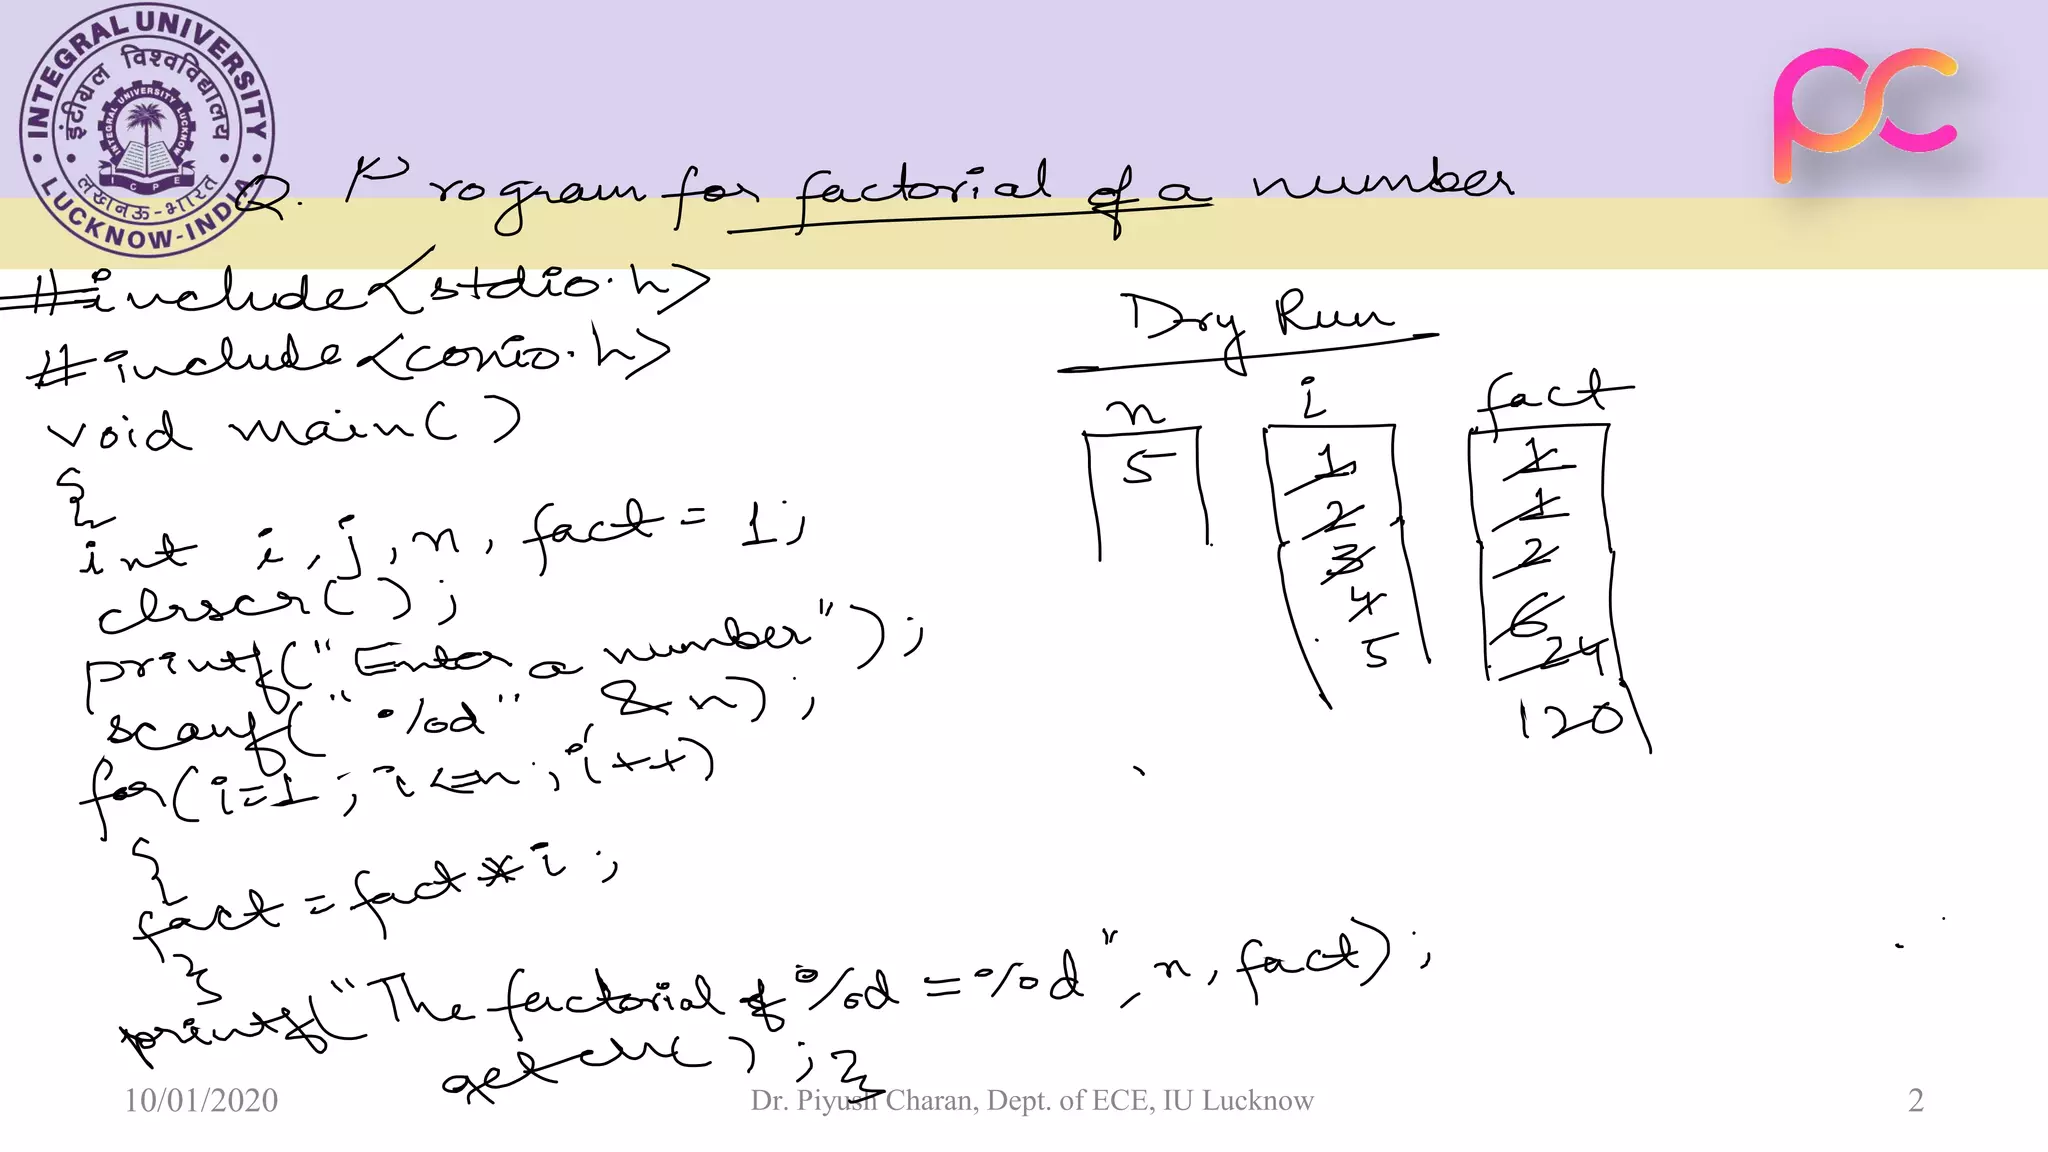 INTEGRAL UNIVERSITY
इंटीग्रल विश्वविद्यालय
INTEGRAL UNIVERSITY LUCKNOW
I C P E
लखनऊ-भारत
LUCKNOW-INDIA
PC
Q. Program for factorial of a number
#include<stdio.h>
#include<conio.h>
void main()
{
int i, j, n, fact = 1;
clrscr();
printf("Enter a number");
scanf("%d", &n);
for(i=1; i<=n; i++)
{
fact = fact*i;
}
printf("The factorial of %d = %d", n, fact);
getch();}
Dry Run
n i fact
5 1 1
2 1
3 2
4 6
5 24
120
10/01/2020
Dr. Piyush Charan, Dept. of ECE, IU Lucknow
2